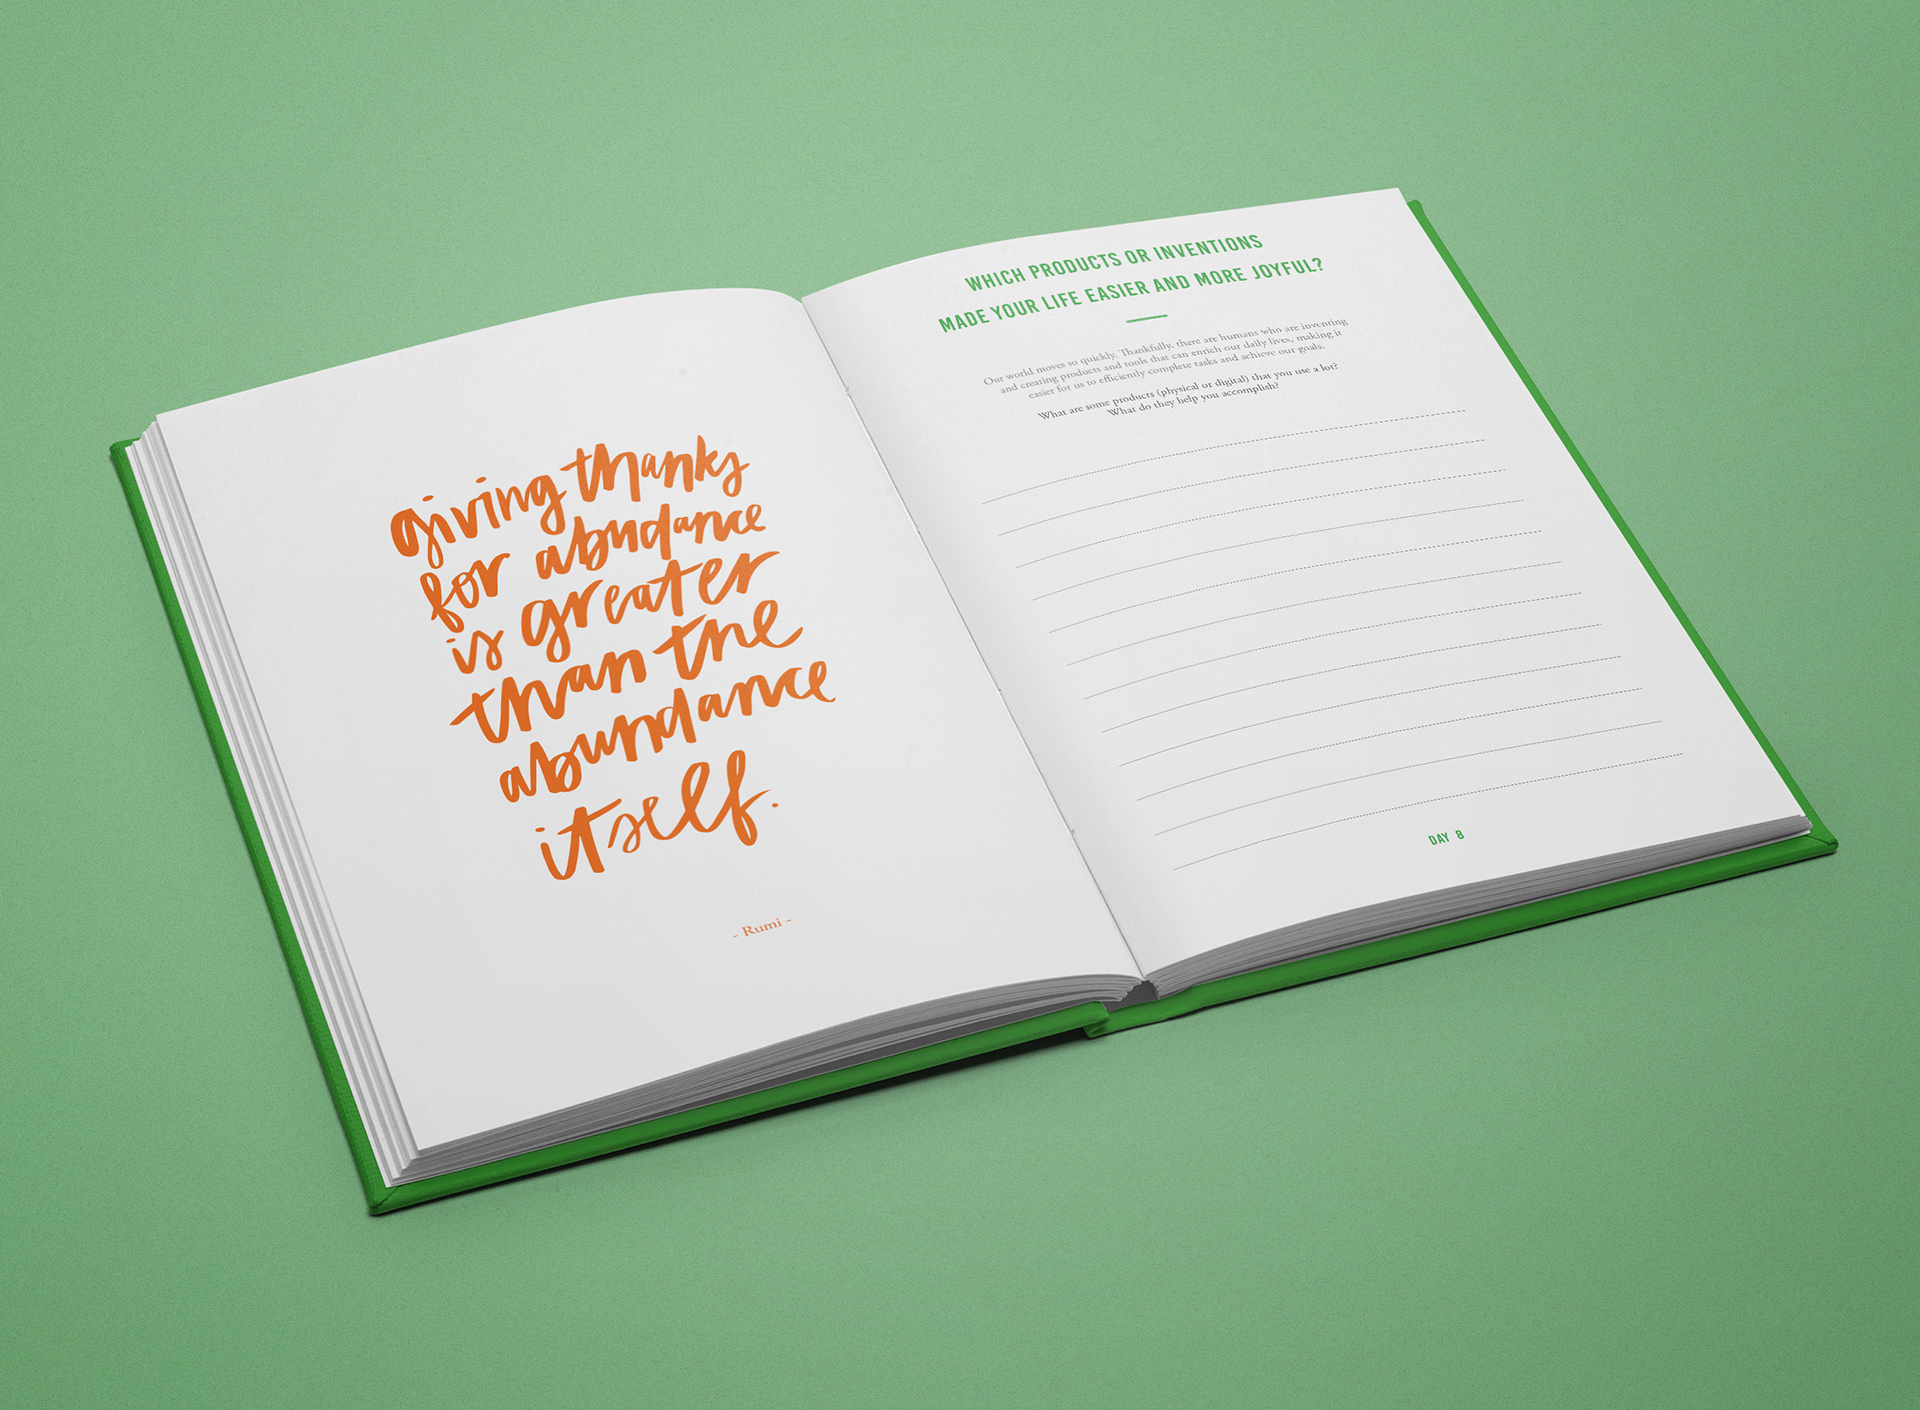 giving thanks
for abudance
is greater
than the
abundance
itself.
- Rumi -
WHICH PRODUCTS OR INVENTIONS
MADE YOUR LIFE EASIER AND MORE JOYFUL?
Our world moves so quickly. Thankfully, there are humans who are inventing
and creating products and tools that can enrich our daily lives, making it
easier for us to efficiently complete tasks and achieve our goals.
What are some products (physical or digital) that you use a lot?
What do they help you accomplish?
DAY 8